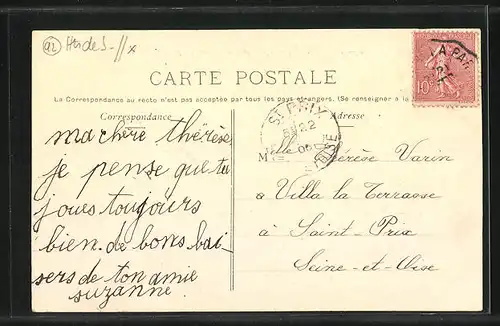 92 Hts de S.
CARTE POSTALE
La Correspondance au recto n'est pas acceptée par tous les pays étrangers. (Se renseigner à la
Correspondance
Adresse
10c
LA PAR
ST PRIX
22
06
OISE
ma chère thérèse
je pense que tu
joues toujours
bien. de bons bai-
sers de ton amie
suzanne
Mlle Thérèse Varin
a Villa la Terrasse
à Saint-Prix
Seine-et-Oise